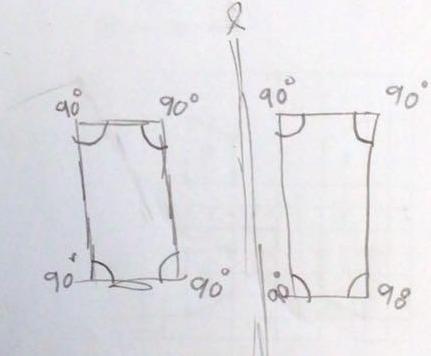 l
90° 90° 90° 90°
90° 90° 90° 98